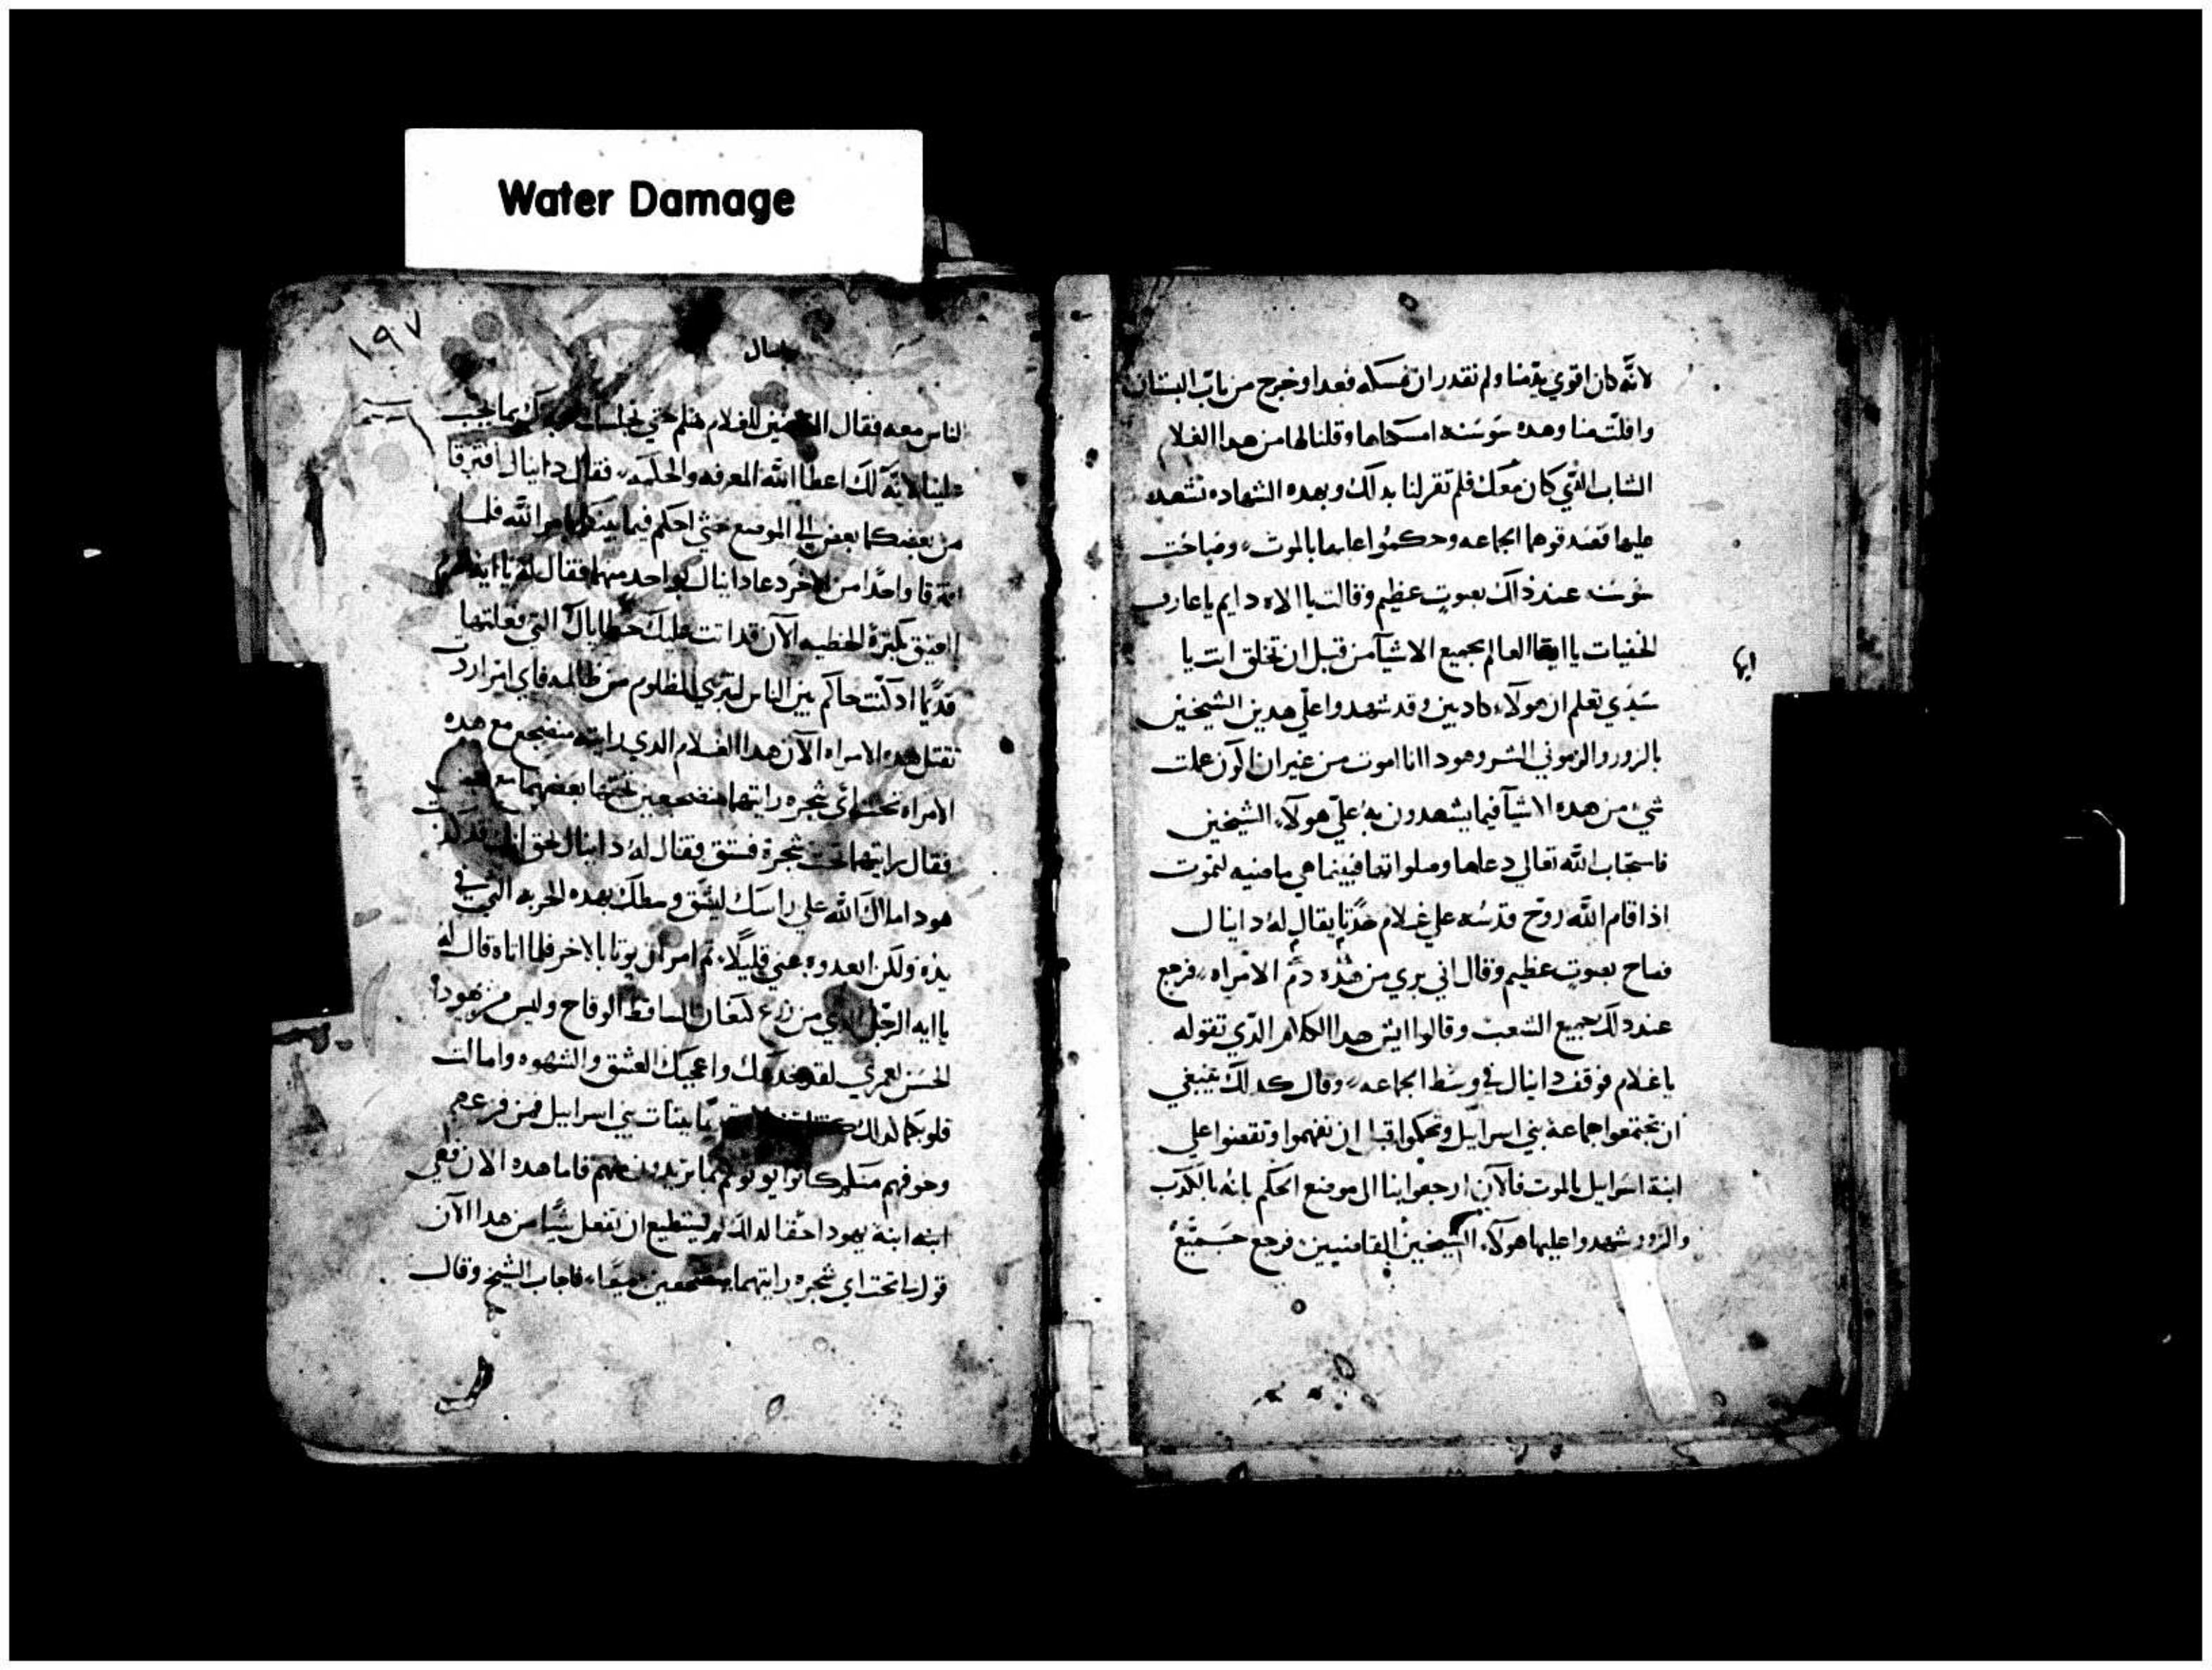 Water Damage
لانه كان اقوي منا ولم نقدر ان نمسكه فعدا وخرج من باب البستان
وافلت منا وهده سوسنه امسكناها وقلنا لها من هدا الغلام
الشاب الدي كان معك فلم تقر لنا بدلك وبهده الشهاده نشهد
عليها فصدقوهما الجماعه وحكموا عليها بالموت وصاحت
سوسنه عند ذلك بصوت عظيم وقالت يا الاه دايم يا عارف
الخفيات يا ايها العالم بجميع الاشيآ من قبل ان تخلق انت يا
ايها
سيدي تعلم ان هولآء كادبين وقد شهدوا علي هدين الشيخين
بالزور والزموني الشر وهودا انا اموت من غير ان اكون عملت
شي من هده الاشيآ فيما يشهدون به علي هولآء الشيخين
فاستجاب الله تعالي دعاها وصلواتها فبينما هي ماضيه لتموت
اذ اقام الله روح قدسه علي غلام حدثا يقال له دانيال
فصاح بصوت عظيم وقال اني بري من هده دم الامراه فرجع
عند دلك جميع الشعب وقالوا ايش هدا الكلام الدي تقوله
يا غلام فوقف دانيال في وسط الجماعه وقال كدلك ينبغي
ان تجتمعوا جماعة بني اسرآيل وتحكموا قبل ان تفهموا وتقضوا علي
ابنة اسرايل بالموت فالآن ارجعوا بنا الى موضع الحكم بانه بالكدب
والزور شهدوا عليها هولآء الشيخين القاضيين فرجع جميع
١٩٧
دانيال
الناس معه فقال الشيخين للغلام هلم حتي نجلسك بما يجب
علينا لانه لك اعطا الله المعرفه والحكمه فقال دانيال افترقا
من بعضكما بعض الي الموضع حتي احكم فيما بينكما بامر الله فلما
افترقا واحدا من الاخر دعا دانيال بواحد منهما فقال له يا ايها الهرم
العتيق بكثرة الخطيه الآن قد اتت عليك خطاياك التي فعلتها
قديما اد كنت حاكم بين الناس لتبري المظلوم من ظالمه فاي امر اردت
تقتل هده الامراه الآن هدا الغلام الدي رايته منضجع مع هده
الامراه تحت اي شجره رايتهما منضجعين تحتها بعضهما مع بعض
فقال رايتهما تحت شجرة فستق فقال له دانيال لحق
هودا ملاك الله علي راسك ليشق وسطك بهده الحربه التي في
يده ولكن ابعدوه عني قليلا تم امر ان يوتا بالاخر فلما اتاه قال له
يا ايه الرجل الدي من زرع كنعان الساقط الوقاح وليس من يهودا
الحسن لعمري لقد خدعك واعجبك العشق والشهوه وامالت
قلوبكما لدلك يا بنات بني اسراييل فمن فزعهم
وخوفهم منكم كانوا يوتوكم بما تريدون منهم فاما هده الان فهي
ابنه ابنة يهودا حقا لدلك لم تستطيع ان تفعل شيا من هدا الآن
قول لي تحت اي شجره رايتهما منضجعين معا فاجاب الشيخ وقال